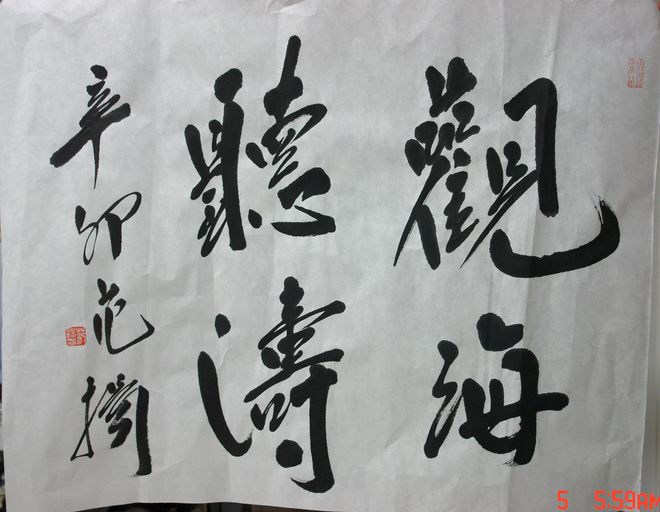 觀海
聽濤
辛卯范
5 5:59AM